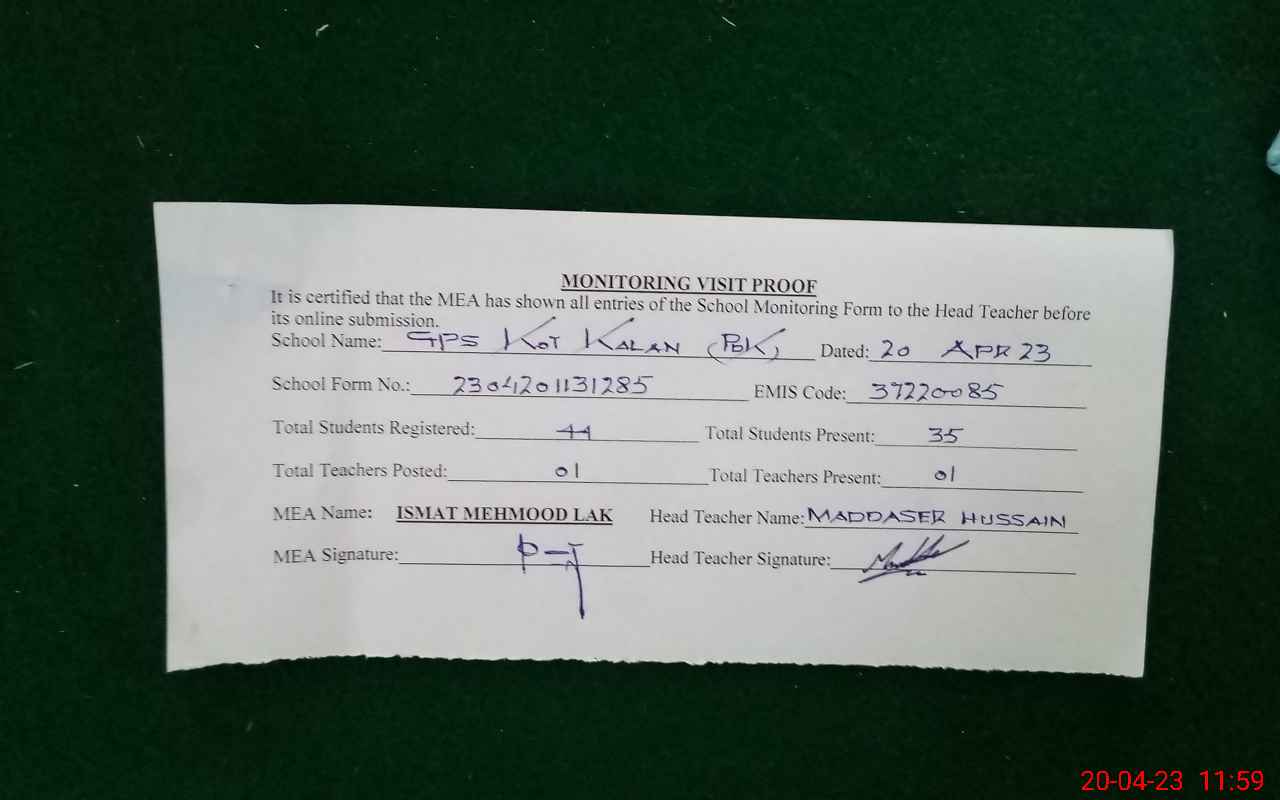 MONITORING VISIT PROOF
It is certified that the MEA has shown all entries of the School Monitoring Form to the Head Teacher before
its online submission.
School Name: GPS KOT KALAN (PBK) Dated: 20 APR 23
School Form No.: 2304201131285 EMIS Code: 37220085
Total Students Registered: 44 Total Students Present: 35
Total Teachers Posted: 01 Total Teachers Present: 01
MEA Name: ISMAT MEHMOOD LAK Head Teacher Name: MADDASER HUSSAIN
MEA Signature: Head Teacher Signature:
20-04-23 11:59